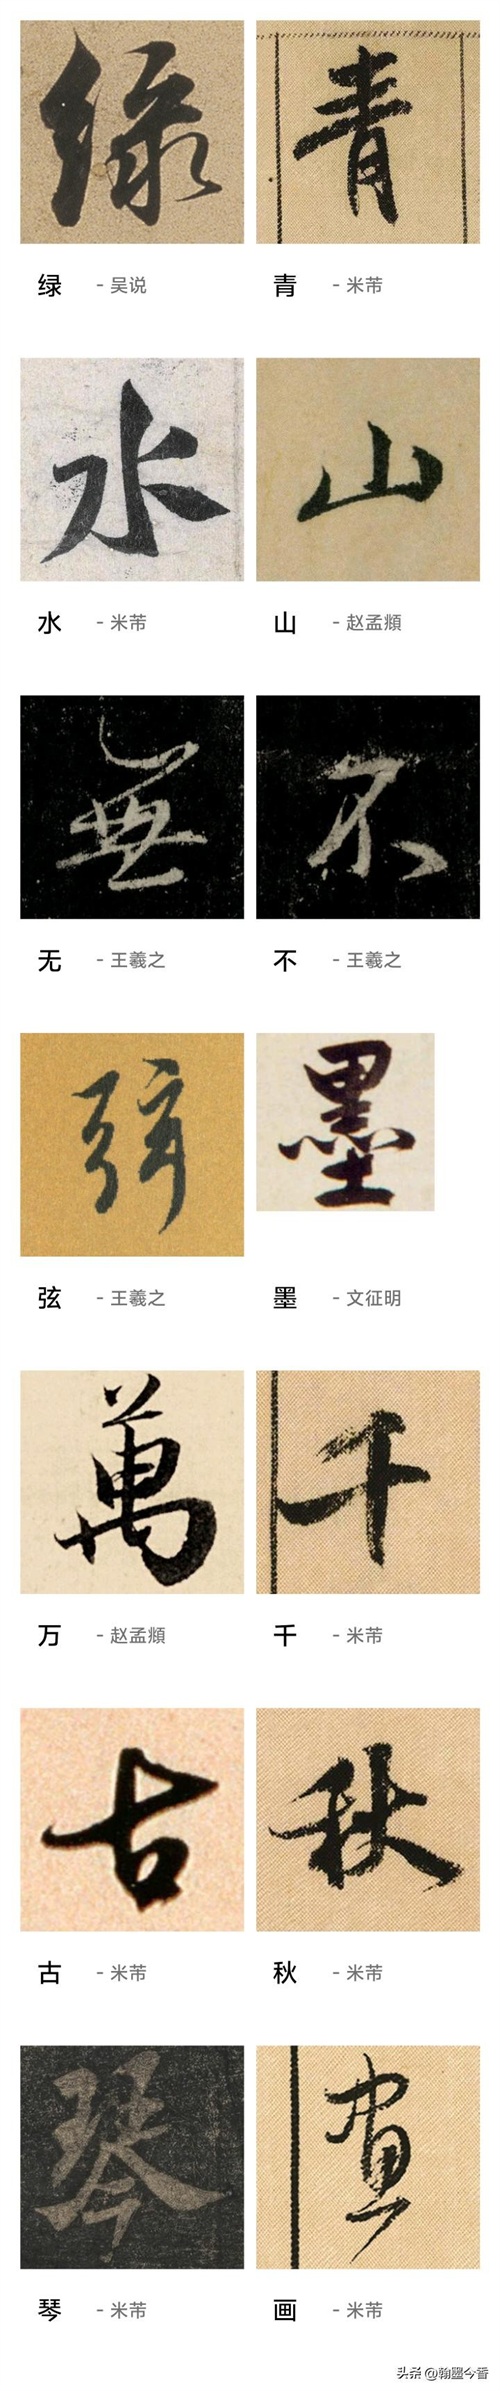 绿 青
绿 - 吴说 青 - 米芾
水 山
水 - 米芾 山 - 赵孟頫
無 不
无 - 王羲之 不 - 王羲之
弦 墨
弦 - 王羲之 墨 - 文征明
萬 千
万 - 赵孟頫 千 - 米芾
古 秋
古 - 米芾 秋 - 米芾
琴 画
琴 - 米芾 画 - 米芾
头条 @翰墨今香